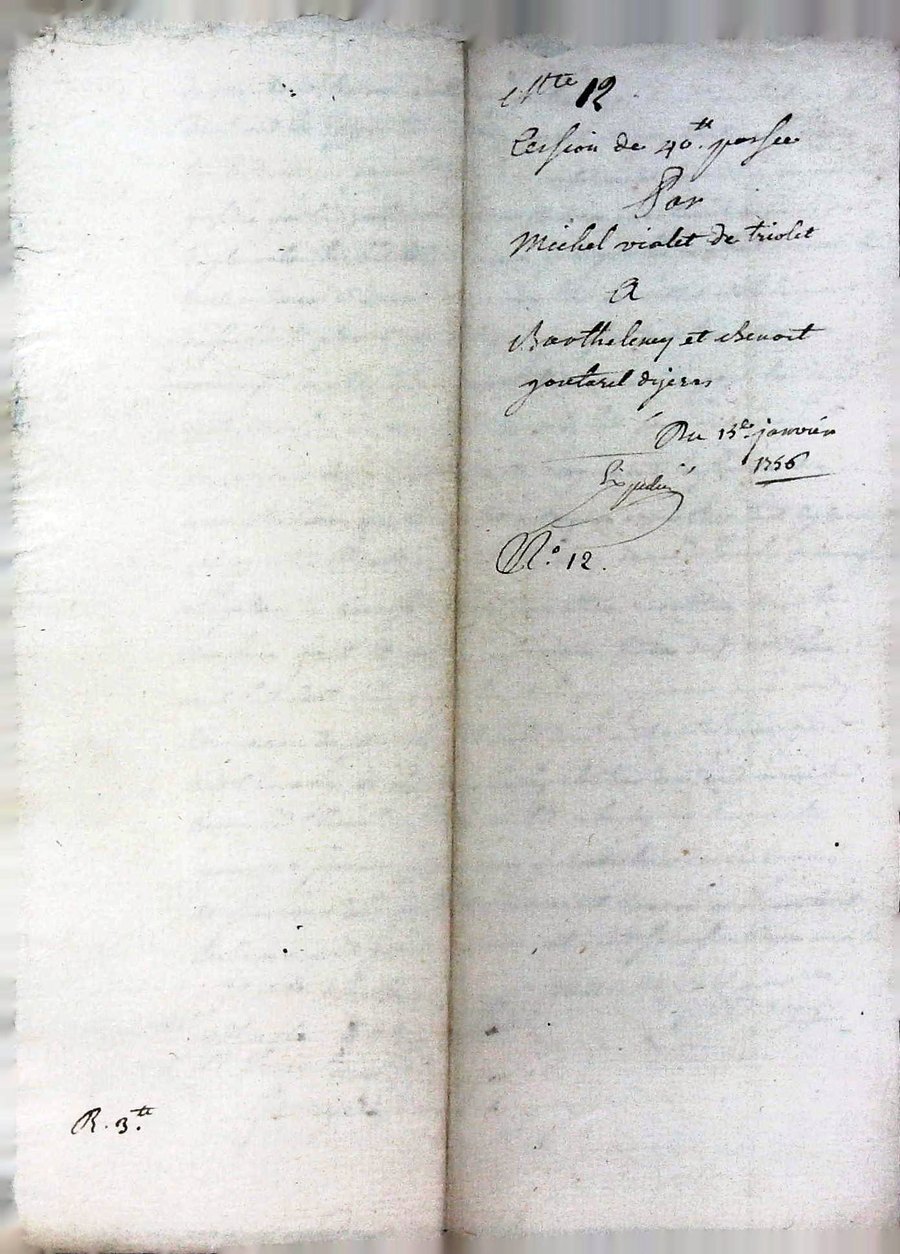 12
Cession de 40.ᵗᵗ passée
Par
Michel violet de triolet
A
Barthelemy et Benoit
goutarel d'yeras
Du 15ᵉ janvier
1756
Expedié
N.º 12.
R. 3.ᵗᵗ